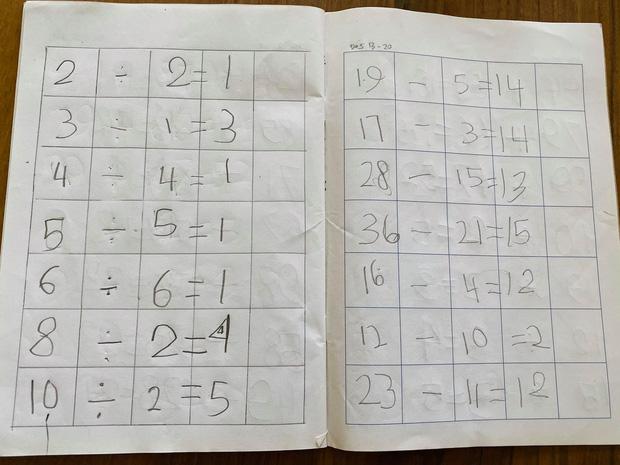 2 ÷ 2 = 1
3 ÷ 1 = 3
4 ÷ 4 = 1
5 ÷ 5 = 1
6 ÷ 6 = 1
8 ÷ 2 = 4
10 ÷ 2 = 5
19 - 5 = 14
17 - 3 = 14
28 - 15 = 13
36 - 21 = 15
16 - 4 = 12
12 - 10 = 2
23 - 11 = 12